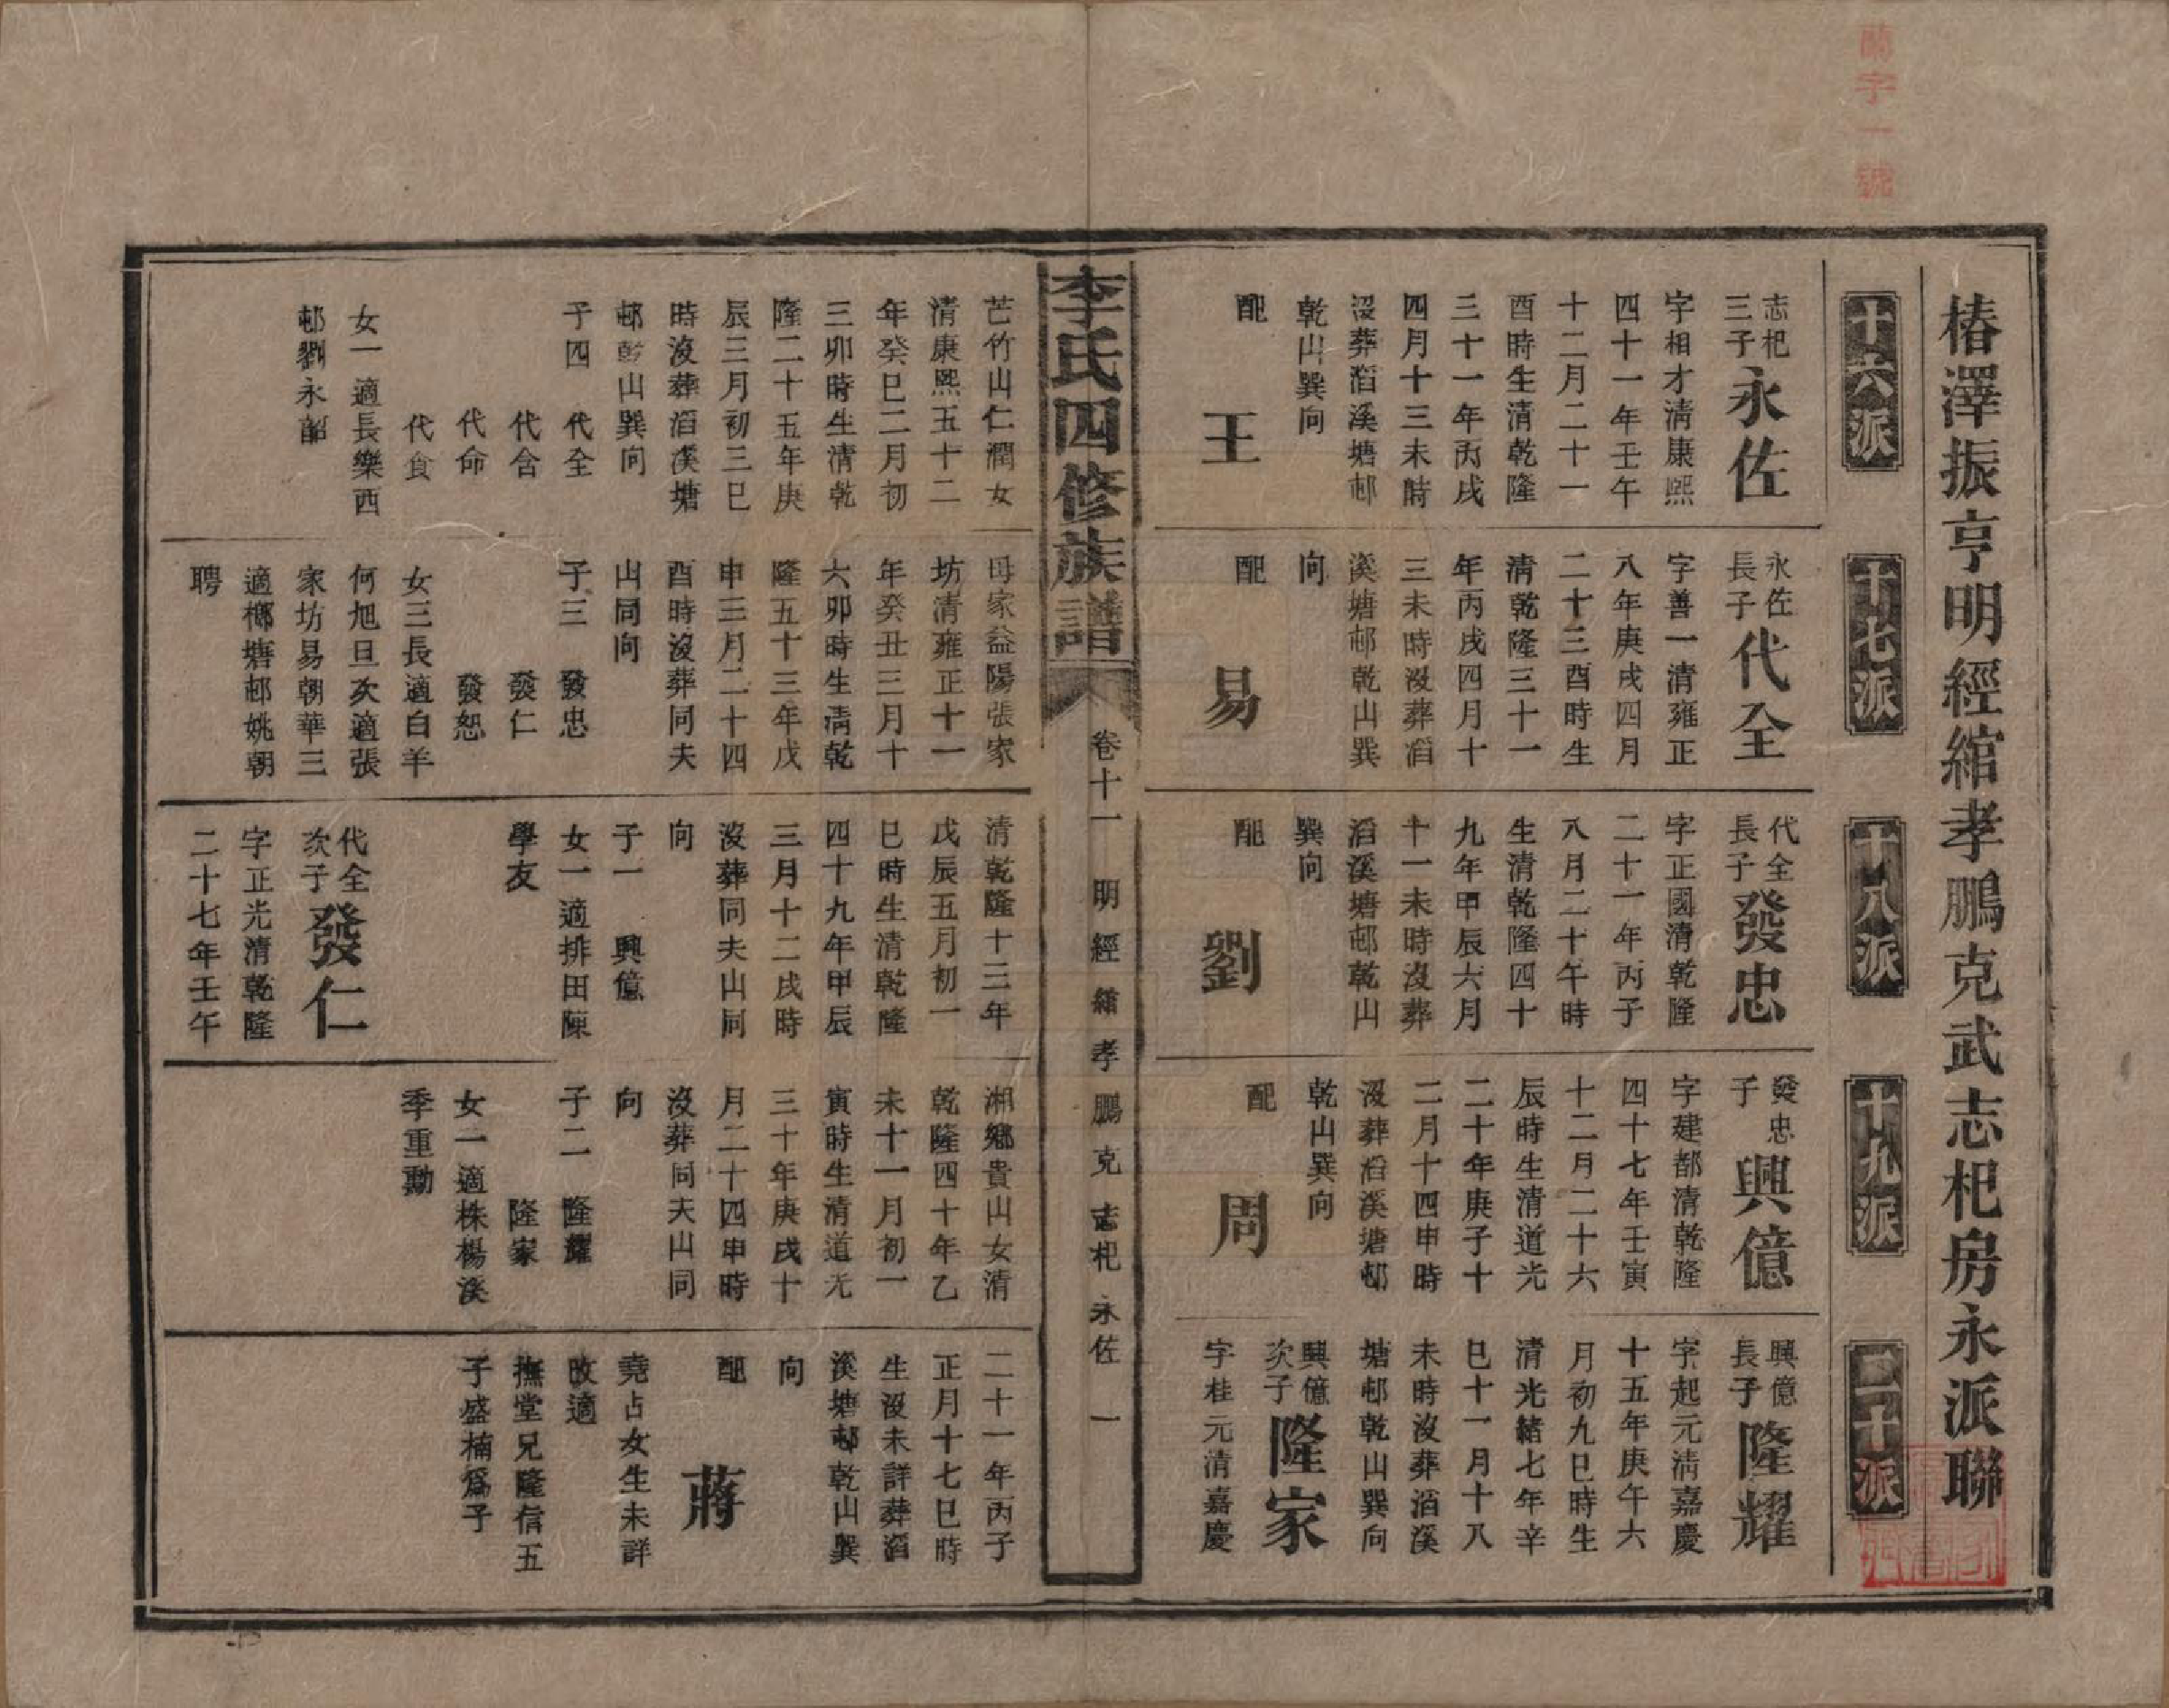 蘭字一號
椿澤振亨明經綰孝鵬克武志杞房永派聯
十六派
志杞
三子
永佐
字相才清康熙
四十一年壬午
十二月二十一
酉時生清乾隆
三十一年丙戌
四月十三未時
沒葬滔溪塘邨
乾山巽向
配
王
十七派
永佐
長子
代全
字善一清雍正
八年庚戌四月
二十三酉時生
清乾隆三十一
年丙戌四月十
三未時沒葬滔
溪塘邨乾山巽
向
配
易
十八派
代全
長子
發忠
字正國清乾隆
二十一年丙子
八月二十午時
生清乾隆四十
九年甲辰六月
十一未時沒葬
滔溪塘邨乾山
巽向
配
劉
十九派
發忠
子
興億
字建都清乾隆
四十七年壬寅
十二月二十六
辰時生清道光
二十年庚子十
二月十四申時
沒葬滔溪塘邨
乾山巽向
配
周
二十派
興億
長子
隆耀
字起元清嘉慶
十五年庚午六
月初九巳時生
清光緒七年辛
巳十一月十八
未時沒葬滔溪
塘邨乾山巽向
興億
次子
隆家
字桂元清嘉慶
李氏四修族譜
卷十一
明經綰孝鵬克
志杞
永佐
一
芒竹山仁潤女
清康熙五十二
年癸巳二月初
三卯時生清乾
隆二十五年庚
辰三月初三巳
時沒葬滔溪塘
邨乾山巽向
子四 代全
代含
代命
代食
女一適長樂西
邨劉永韶
母家益陽張家
坊清雍正十一
年癸丑三月十
六卯時生清乾
隆五十三年戊
申三月二十四
酉時沒葬同夫
山同向
子三 發忠
發仁
發恕
女三長適白羊
何旭旦次適張
家坊易朝華三
適榔塘邨姚朝
聘
清乾隆十三年
戊辰五月初一
巳時生清乾隆
四十九年甲辰
三月十二戌時
沒葬同夫山同
向
子一 興億
女一適排田陳
學友
代全
次子
發仁
字正光清乾隆
二十七年壬午
湘鄉貴山女清
乾隆四十年乙
未十一月初一
寅時生清道光
三十年庚戌十
月二十四申時
沒葬同夫山同
向
子二 隆耀
隆家
女一適株楊溪
季重勳
二十一年丙子
正月十七巳時
生沒未詳葬滔
溪塘邨乾山巽
向
配
蔣
堯占女生未詳
改適
撫堂兄隆信五
子盛楠爲子